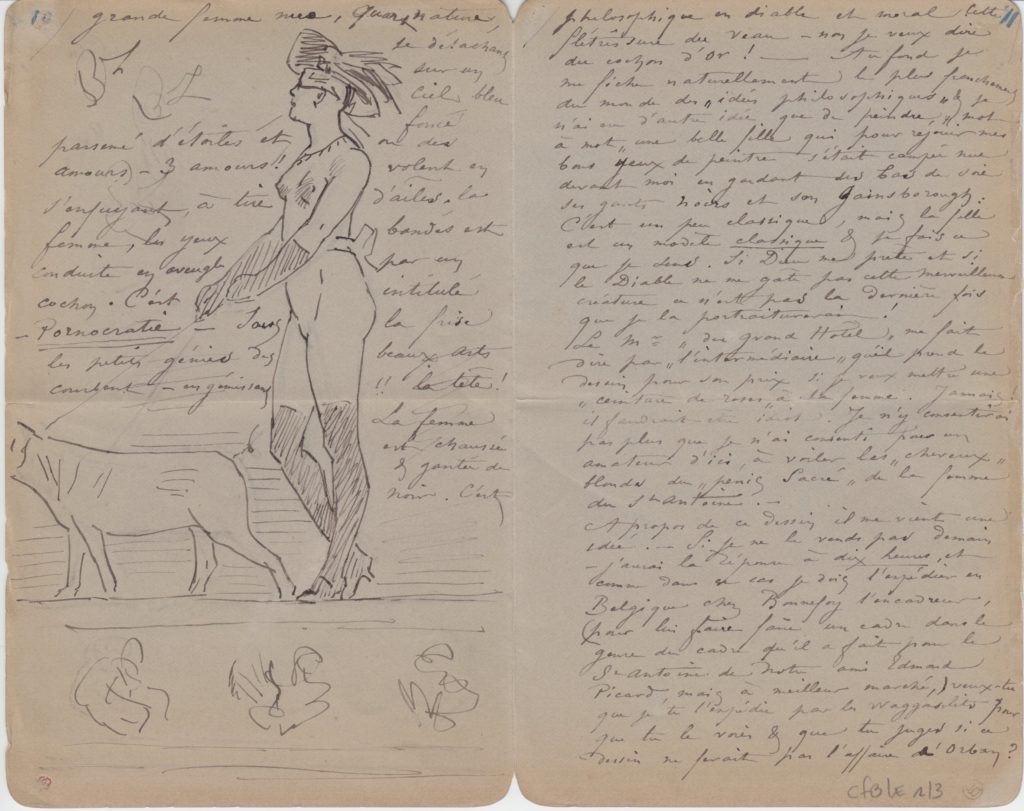 10
grande femme nue, quart nature,
se détachant
sur un
ciel bleu
foncé
parsemé d'étoiles et où des
amours – 3 amours!! volent en
s'enfuyant, à tire d'ailes. la
femme, les yeux bandés est
conduite en aveugle par un
cochon. C'est intitulé
Pornocratie – Sous la frise
les petits génies des beaux arts
courbent – en gémissant !! la tête!
La femme
est chaussée
& gantée de
noir. C'est
11
philosophique en diable et moral cette
flétrissure du veau – non je veux dire
du cochon d'Or! – Au fond je
me fiche naturellement le plus franchement
du monde des „idées philosophiques" & je
n'ai eu d'autre idée que de peindre, „mot
à mot" une belle fille qui pour réjouir mes
bons yeux de peintre s'était campée nue
devant moi en gardant ses bas de soie
ses gants noirs et son Gainsborough.
C'est un peu classique, mais la fille
est un modèle classique & je fais ce
que je sens. Si Dieu me prête et si
le Diable ne me gâte pas cette merveilleuse
créature ce n'est pas la dernière fois
que je la portraiturerai!
Le Md „du grand Hôtel", me fait
dire par l'intermédiaire, qu'il prend le
dessin pour son prix si je veux mettre une
„ceinture de roses" à la femme. Jamais!
il faudrait être idiot. Je n'y consentirai
pas plus que je n'ai consenti pour un
amateur d'ici à voiler les „cheveux"
blonds du „pénis Sacré" de la femme
du St Antoine. –
A propos de ce dessin il me vient une
idée. – Si je ne le vends pas demain
– j'aurai la réponse à dix heures, et
comme dans ce cas je dois l'expédier en
Belgique chez Bonnefoy l'encadreur,
(pour lui faire faire un cadre dans le
genre du cadre qu'il a fait pour le
St Antoine de notre ami Edmond
Picard, mais à meilleur marché,) veux-tu
que je te l'expédie par les pour
que tu le voies & que tu juges si ce
dessin ne ferait pas l'affaire d'Orban?